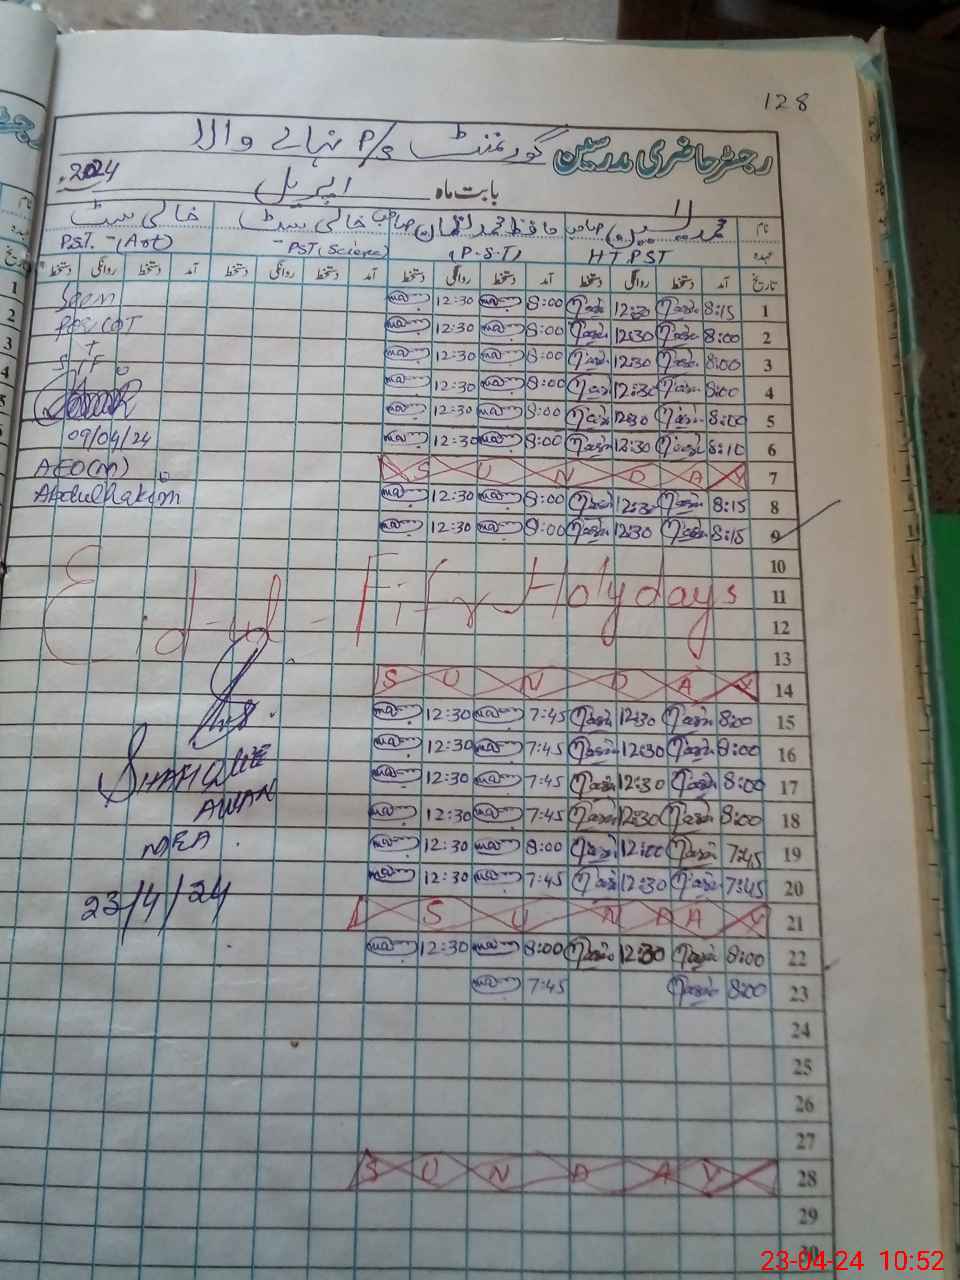 128
رجسٹر حاضری مدرسین گورنمنٹ P/S نہالے والا
بابت ماہ اپریل 2024
نام محمد یٰسین صاحب حافظ محمد لقمان صاحب خالی سٹ خالی سٹ
عہدہ HTPST (P.S.T) PST (Science) P.S.T. - (Art)
تاریخ آمد دستخط روانگی دستخط آمد دستخط روانگی دستخط آمد دستخط روانگی دستخط آمد دستخط روانگی دستخط
1 8:15 12:30 8:00 12:30
2 8:00 12:30 8:00 12:30
3 8:00 12:30 8:00 12:30
4 8:00 12:30 8:00 12:30
5 8:00 12:30 8:00 12:30
6 8:10 12:30 8:00 12:30
09/04/24
7 SUNDAY
AEO(M)
8 8:15 12:30 8:00 12:30
Abdul Hakim
9 8:15 12:30 8:00 12:30
10
11 Eid-ul-Fitr Holydays
12
13
14 SUNDAY
15 8:00 12:30 7:45 12:30
16 8:00 12:30 7:45 12:30
17 8:00 12:30 7:45 12:30
18 8:00 12:30 7:45 12:30
AWAN
19 7:45 12:00 8:00 12:30
MEA
20 7:45 12:30 7:45 12:30
23/4/24
21 SUNDAY
22 8:00 12:30 8:00 12:30
23 8:00 7:45
24
25
26
27
28 SUNDAY
29
30
23-04-24 10:52